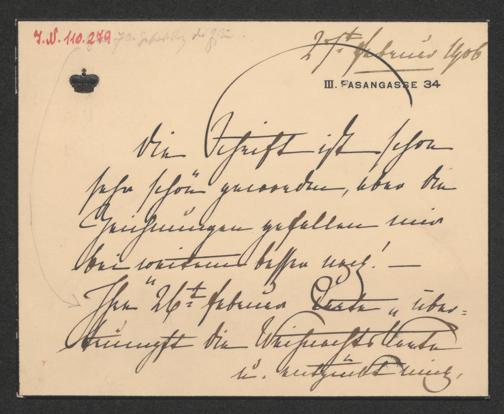 I. N. 110.279 70. Geburtstag
27st Februar 1906
III. FASANGASSE 34
Die Schrift ist schon
sehr schön geworden, aber die
Zeichnungen gefallen mir
bei weitem besser noch! —
Ihre "26t Februar Karte" über=
trumpft die Weihnachts Karte
u. entzückt mich.